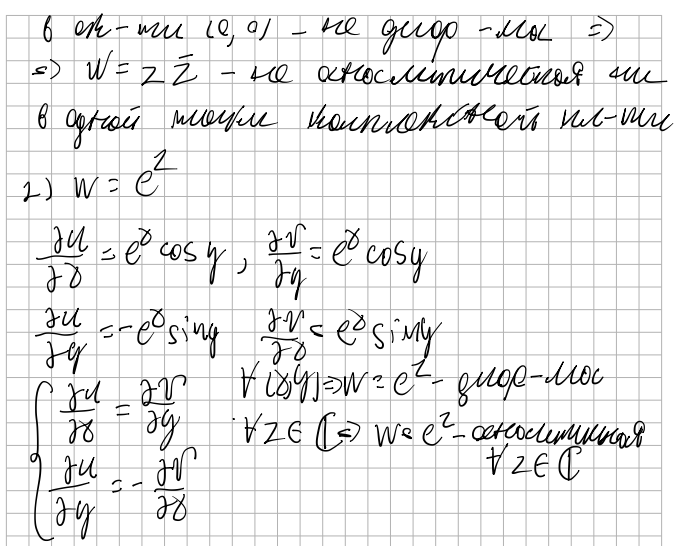 в ок-ти (0,0) - не диф-ма =>
=> W = z z̄ - не аналитическая ни
в одной точки комплексной пл-ти
2) w = e^z
∂u/∂x = e^x cos y, ∂v/∂y = e^x cos y
∂u/∂y = -e^x sin y ∂v/∂x = e^x sin y
{ ∂u/∂x = ∂v/∂y ∀(x,y) => w = e^z - диф-ма
∀ z ∈ ℂ => w = e^z - аналитичная
∂u/∂y = -∂v/∂x ∀ z ∈ ℂ